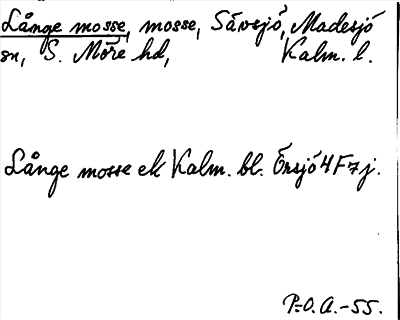 Långe mosse, mosse, Sävsjö, Madesjö
sn, S. Möre hd, Kalm. l.
Långe mosse ek Kalm. bl. Örsjö 4F7j.
P.O.A.-55.